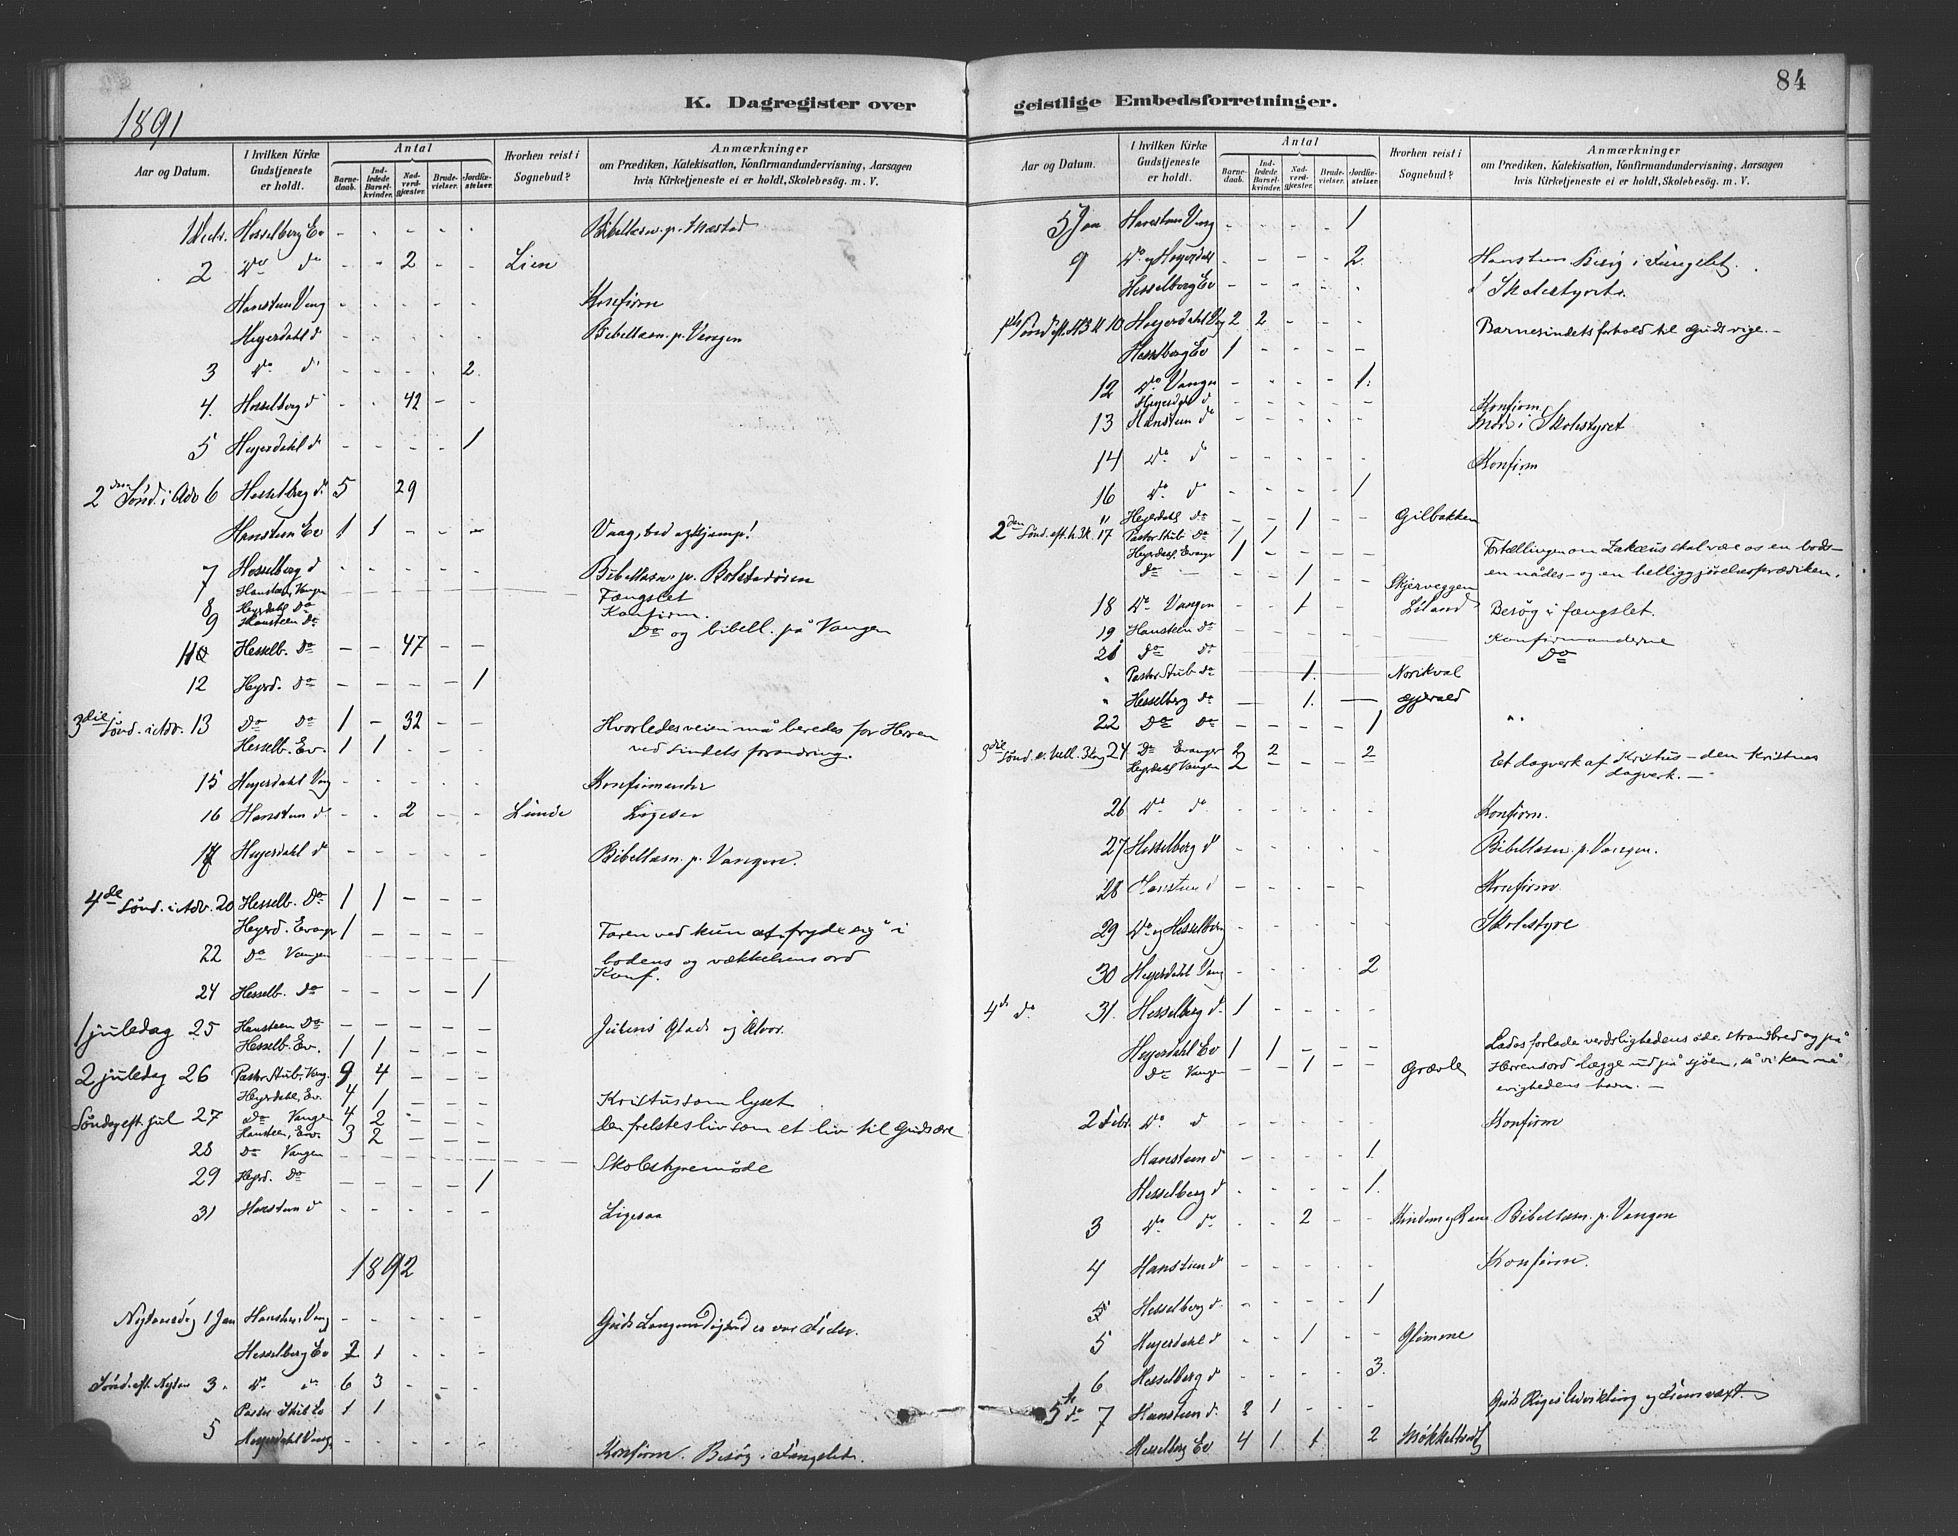 84
K. Dagregister over geistlige Embedsforretninger.
1891
Aar og Datum. | I hvilken Kirke Gudstjeneste er holdt. | Antal | Barne-daab. | Ind-ledede Barsel-kvinder. | Nad-verd-gjæster. | Brude-vielser. | Jordfæ-stelser. | Hvorhen reist i Sognebud? | Anmærkninger om Prædiken, Katekisation, Konfirmandundervisning, Aarsagen hvis Kirketjeneste ei er holdt, Skolebesøg. m. V.
1 Decbr. Hesselberg Ev - - - - -
2 Do do - - 2 - - Lien
Hansteen Vang - - - - - Konfirm
Heyerdahl d - - - - - Bibellæsn. p. Vangen
3 Do d - - - - 2
4. Hesselberg d - - 42 - -
5 Heyerdahl d - - - - 1
2den Sønd. i Adv 6 Hesselberg d. 5 29
Hansteen Ev 1 1 - - - Vaag, bed og kjæmp!
7 Hesselberg d Bibellæsn. p. Bolstadøren
7 Hansteen, Vangen Fængslet
8 Heyerdahl Do Konfirm.
9 Hansteen Do Do og bibell. på Vangen
10 Hesselb. Do - - 47 - -
12 Heyrd. Do - - - - 1
3die Sønd. i Adv. 13 Do Do 1 - 32 - - Hvorledes veien må beredes for Herren
Hesselb. Ev. 1 1 - - - ved sindets forandring.
15 Heyerdahl Vang - - - - - Konfirmander
16 Hansteen d - - 2 - - Lunde Ligesaa
17 Heyerdahl d - - - - - Bibellæsn. p. Vangen.
4de Sønd. i Adv. 20 Hesselb. Do 1 1 - - -
Heyerd. Evanger 1 - - - - Faren ved kun at "fryde sig" i
22 Do Vangen bodens og vækkelsens ord
Konf.
24 Hesselb. Do - - - - 1
1 juledag 25 Hansteen Do - - - - - Julens Glæde og Alvor.
Hesselb. Ev. 1 1 - - -
2 juledag 26 Pastor Stub, Vang. 9 4 - - -
Heyerdahl, Ev. 4 1 - - - Kristus som lyset
Søndag eft. jul 27 Do Vangen 4 2 - - - Den frelstes liv som et liv til Guds ære
Hansteen, Ev. 3 2 - - -
28 Do Vangen Skolestyremøde
29 Heyrd. Do - - - - 1
31 Hansteen d - - - - - Ligesaa
1892
Nytaarsdag 1 Jan Hansteen Vang - - - - - Guds Langmodighed er vor Frelse.
Hesselberg Ev 2 1 - - -
Sønd. eft. Nytaar 3. Do do 6 3 - - -
Pastor Stub Ev 1 1
5 Heyerdahl Vang. - - - - - Konfirm. Besøg i Fængslet.
Aar og Datum. | I hvilken Kirke Gudstjeneste er holdt. | Antal | Barne-daab. | Ind-ledede Barsel-kvinder. | Nad-verd-gjæster. | Brude-vielser. | Jordfæ-stelser. | Hvorhen reist i Sognebud? | Anmærkninger om Prædiken, Katekisation, Konfirmandundervisning, Aarsagen hvis Kirketjeneste ei er holdt, Skolebesøg. m. V.
5 Jan Hansteen Vang - - - - 1
9 Do og Heyerdahl - - - - 2 Hansteen Besøg i Fængslet.
Hesselberg Ev - - - - - i Skolestyret.
1ste Sønd. eft. H 3 K 10 Heyerdahl Vang 2 2 Barnesindets forhold til Guds rige. -
Hesselberg Ev 1 - - - -
12 Do Vangen - - - - 1.
Heyerdahl d - - - - - Konfirm.
13 Hansteen do Møde i Skolestyret
14 Do d - - - - - Konfirm
16 Do d - - - - 1
" Heyerdahl Do - - 1 - - Gilbakken
2den Sønd. eft. h. 3 K. 17 Pastor Stub Do 1 1
Heyerdahl, Evanger 1 - - - - Fortællingen om Zakæus skal være os en bods-
Do - - 1 - - Skjerveggen en nådes- og en helliggjørelsesprædiken.
18 Do Vangen - - 1 - - Liland Besøg i fængslet.
19. Hansteen Do Konfirmanderne
21 Do Do Do
" Pastor Stub do 1. Norikval
" Hesselberg Do - 1. - Gjerald
22 Do Do - - - - 1 "
3die Sønd. e. Hell. 3 Kong 24 Do Evanger 2 2 - - 2 Et dagverk af Kristus - den kristnes
Heyerdahl Vangen 2 - - - - dagverk. -
26 Do do - - - - - Konfirm.
27 Hesselberg d - - - - - Bibellæsn. p. Vangen.
28 Hansteen d - - - - - Konfirm
29 Do og Hesselberg - - - - - Skolestyre
30 Heyerdahl Vang - - - - 2
4de do. 31. Hesselberg d. 1 - - - -
Heyerdahl Ev 1 1 - - - Lad os forlade verdslighedens øde strandbred og på
Do Vangen - - 1 - - Grævle Herrens ord lægge ud på sjøen, så vi kan nå
evighedens havn. -
2 Febr. Do d - - - - - Konfirm
Hansteen d - - - - 1.
Hesselberg d - - - - 1.
3 Do do - - 2 - - Bibellæsn. p. Vangen
4 Hansteen d - - - - - Konfirm.
5 Hesselberg d. - - - - 1
5 Heyerdahl d - - 1 - - Glimme
6 Hesselberg d - - - - 3.
5te do 7 Hansteen d. 2 1 - - - Guds Riges Udvikling og Fremvæxt.
Hesselberg Ev 4 1 1 - 2